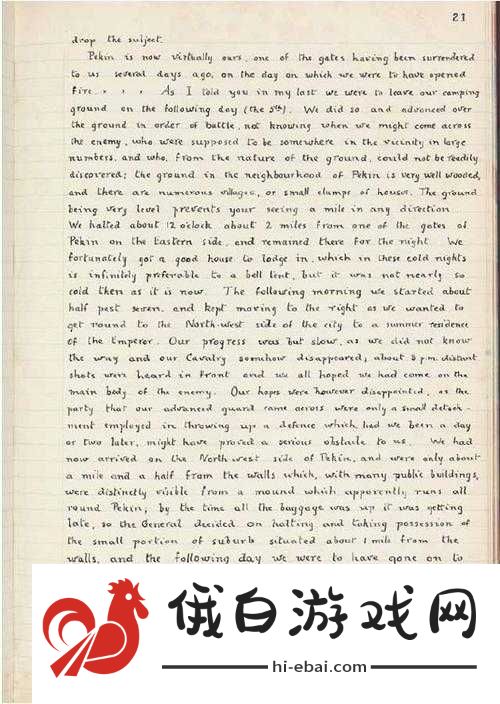 21
drop the subject.
Pekin is now virtually ours, one of the gates having been surrendered
to us several days ago, on the day on which we were to have opened
fire. . . . As I told you in my last we were to leave our camping
ground on the following day (the 5th). We did so and advanced over
the ground in order of battle, not knowing when we might come across
the enemy, who were supposed to be somewhere in the vicinity in large
numbers, and who, from the nature of the ground, could not be readily
discovered; the ground in the neighbourhood of Pekin is very well wooded,
and there are numerous villages, or small clumps of houses. The ground
being very level prevents your seeing a mile in any direction.
We halted about 12 o'clock about 2 miles from one of the gates of
Pekin on the Eastern side, and remained there for the night. We
fortunately got a good house to lodge in, which in these cold nights
is infinitely preferable to a bell tent, but it was not nearly so
cold then as it is now. The following morning we started about
half past seven, and kept moving to the right as we wanted to
get round to the North-West side of the city to a summer residence
of the Emperor. Our progress was but slow, as we did not know
the way and our Cavalry somehow disappeared; about 3 p.m. distant
shots were heard in front and we all hoped we had come on the
main body of the enemy. Our hopes were however disappointed, as the
party that our advanced guard came across were only a small detach-
ment employed in throwing up a defence which, had we been a day
or two later, might have proved a serious obstacle to us. We had
now arrived on the North-west side of Pekin, and were only about
a mile and a half from the walls which, with many public buildings,
were distinctly visible from a mound which apparently runs all
round Pekin; by the time all the baggage was up it was getting
late, so the General decided on halting and taking possession of
the small portion of suburb situated about 1 mile from the
walls, and the following day we were to have gone on to
俄白游戏网
hi-ebai.com